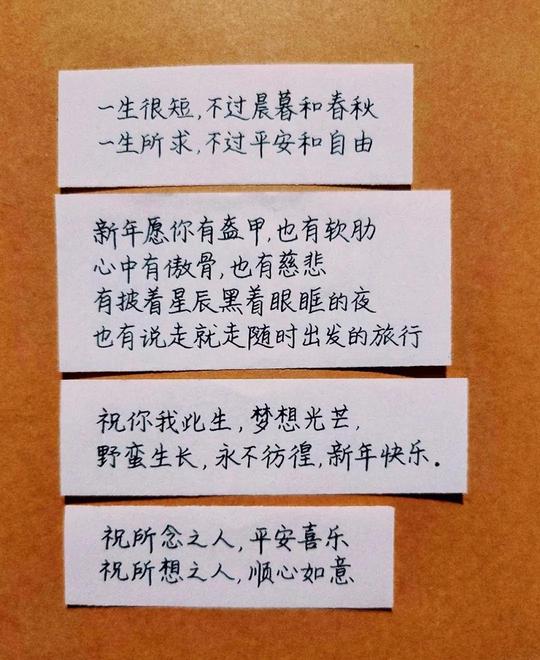 一生很短,不过晨暮和春秋
一生所求,不过平安和自由
新年愿你有盔甲,也有软肋
心中有傲骨,也有慈悲
有披着星辰黑着眼眶的夜
也有说走就走随时出发的旅行
祝你我此生,梦想光芒,
野蛮生长,永不彷徨,新年快乐.
祝所念之人,平安喜乐
祝所想之人,顺心如意